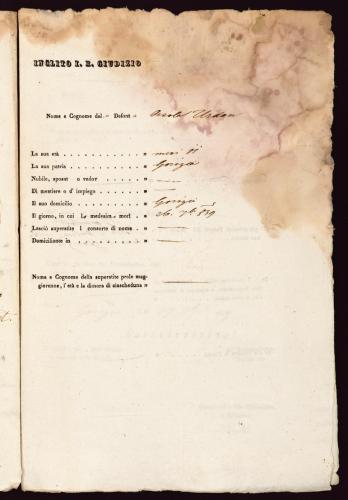 INCLITO I. R. GIUDIZIO
Nome e Cognome del - Defont "
La sua età . . . . . . . . . . . . . . "
La sua patria . . . . . . . . . . . . . " Gorizia
Nubile, sposat o vedov . . . . . . . . "
Di mestiere o d' impiego . . . . . . . . "
Il suo domicilio . . . . . . . . . . . . " Gorizia
Il giorno, in cui l medesim morì . . . . " 26. 7bre 839
Lasciò superstite l consorte di nome . . . "
Domiciliante in . . . . . . . . . . . . "
Nome e Cognome della superstite prole mag-
giorenne, l'età e la dimora di ciascheduna "